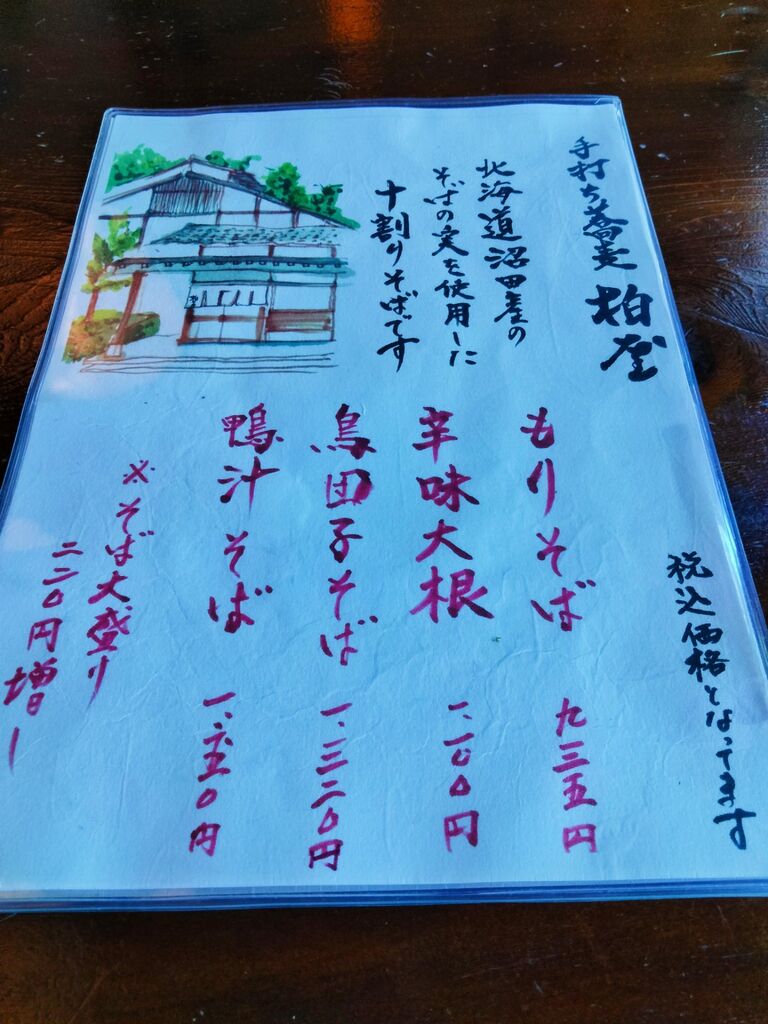 手打ち蕎麦 柏屋
北海道沼田産の
そばの実を使用した
十割りそばです
税込価格となってます
もりそば 九三五円
辛味大根 一、一〇〇円
鳥団子そば 一、三二〇円
鴨汁そば 一、六五〇円
※そば大盛り
二二〇円増し